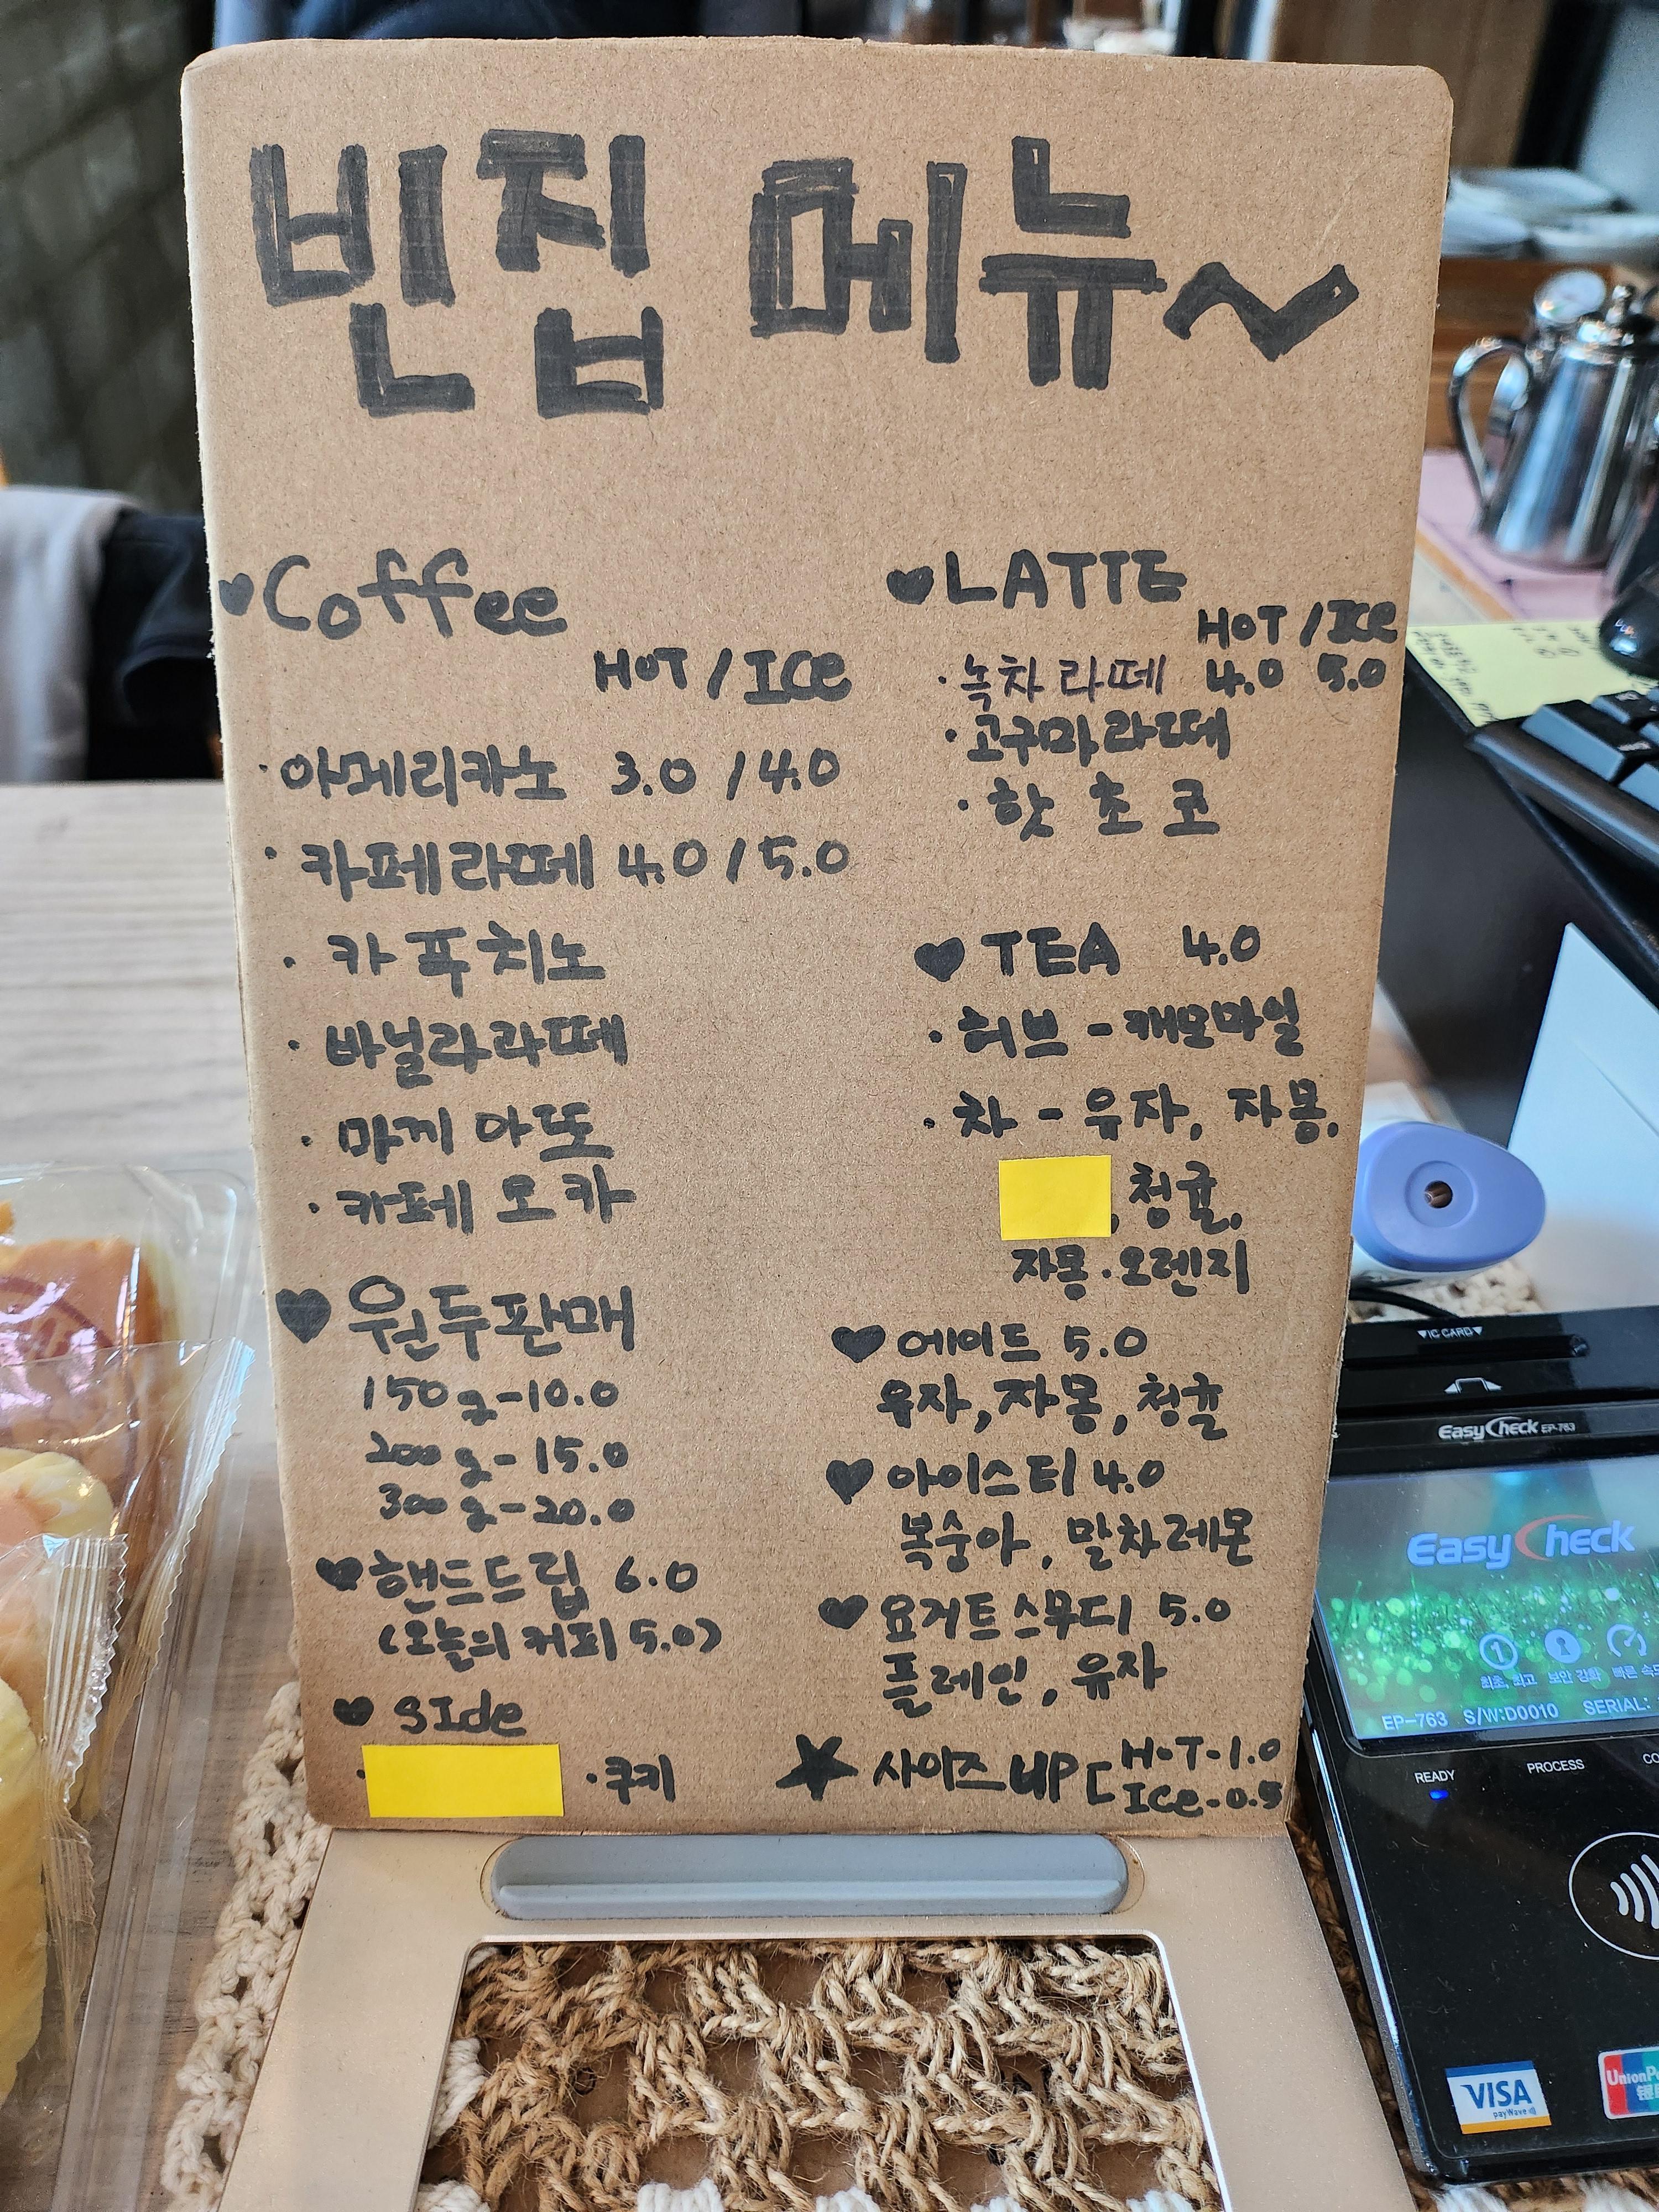 빈집 메뉴~
♥Coffee
HOT / ICe
·아메리카노 3.0 / 4.0
·카페라떼 4.0 / 5.0
·카푸치노
·바닐라라떼
·마끼아또
·카페모카
♥원두판매
150g-10.0
200g-15.0
300g-20.0
♥핸드드립 6.0
(오늘의 커피 5.0)
♥sIde
·쿠키
♥LATTE
HOT / ICe
·녹차라떼 4.0 5.0
·고구마라떼
·핫초코
♥TEA 4.0
·허브-캐모마일
·차-유자, 자몽,
, 청귤,
자몽·오렌지
♥에이드 5.0
유자, 자몽, 청귤
♥아이스티 4.0
복숭아, 말차레몬
♥요거트스무디 5.0
플레인, 유자
★사이즈UP [HOT-1.0
ICe-0.5
▼IC CARD▼
EasyCheck EP-763
EasyCheck
최초, 최고 보안 강화 빠른 속도
EP-763 S/W:D0010 SERIAL:
READY PROCESS
VISA
payWave